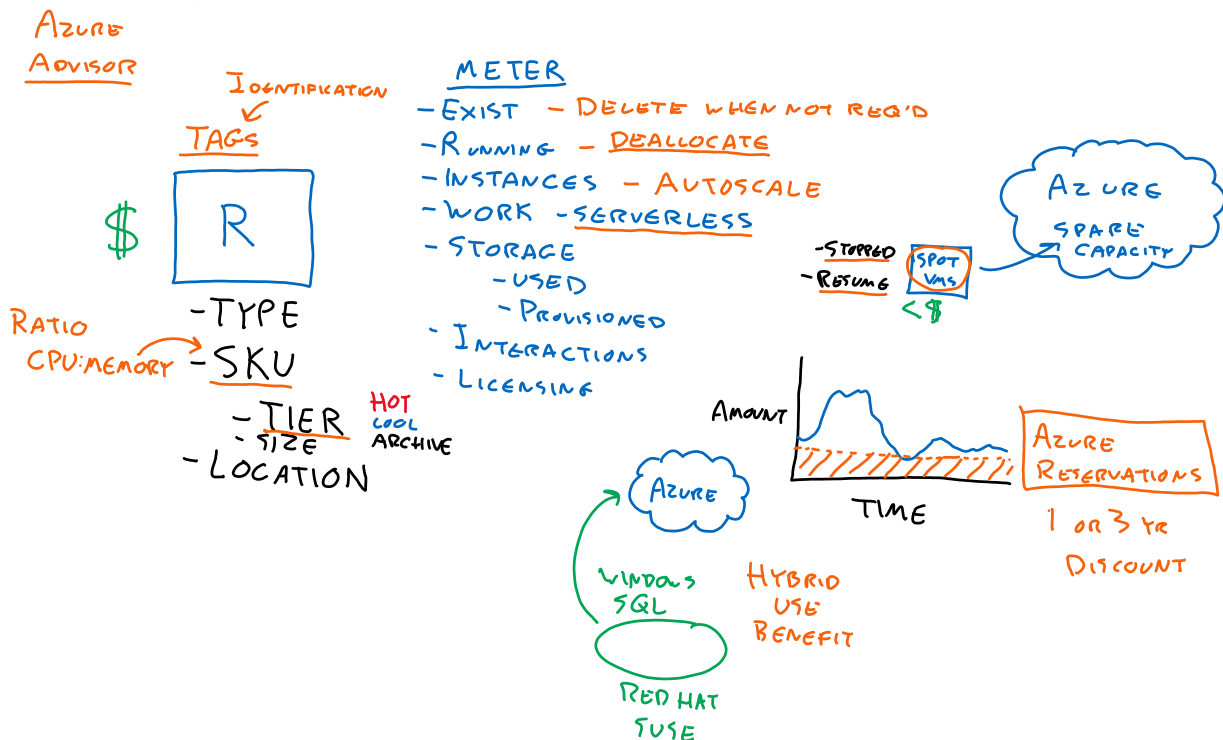 AZURE
ADVISOR
IDENTIFICATION
TAGS
$
R
- TYPE
RATIO
CPU:MEMORY
- SKU
- TIER
HOT
COOL
ARCHIVE
- SIZE
- LOCATION
METER
- EXIST - DELETE WHEN NOT REQ'D
- RUNNING - DEALLOCATE
- INSTANCES - AUTOSCALE
- WORK - SERVERLESS
- STORAGE
- USED
- PROVISIONED
- INTERACTIONS
- LICENSING
AZURE
SPARE
CAPACITY
- STOPPED
- RESUME
SPOT
VMS
<$
AMOUNT
TIME
AZURE
RESERVATIONS
1 OR 3 YR
DISCOUNT
AZURE
WINDOWS
SQL
HYBRID
USE
BENEFIT
RED HAT
SUSE